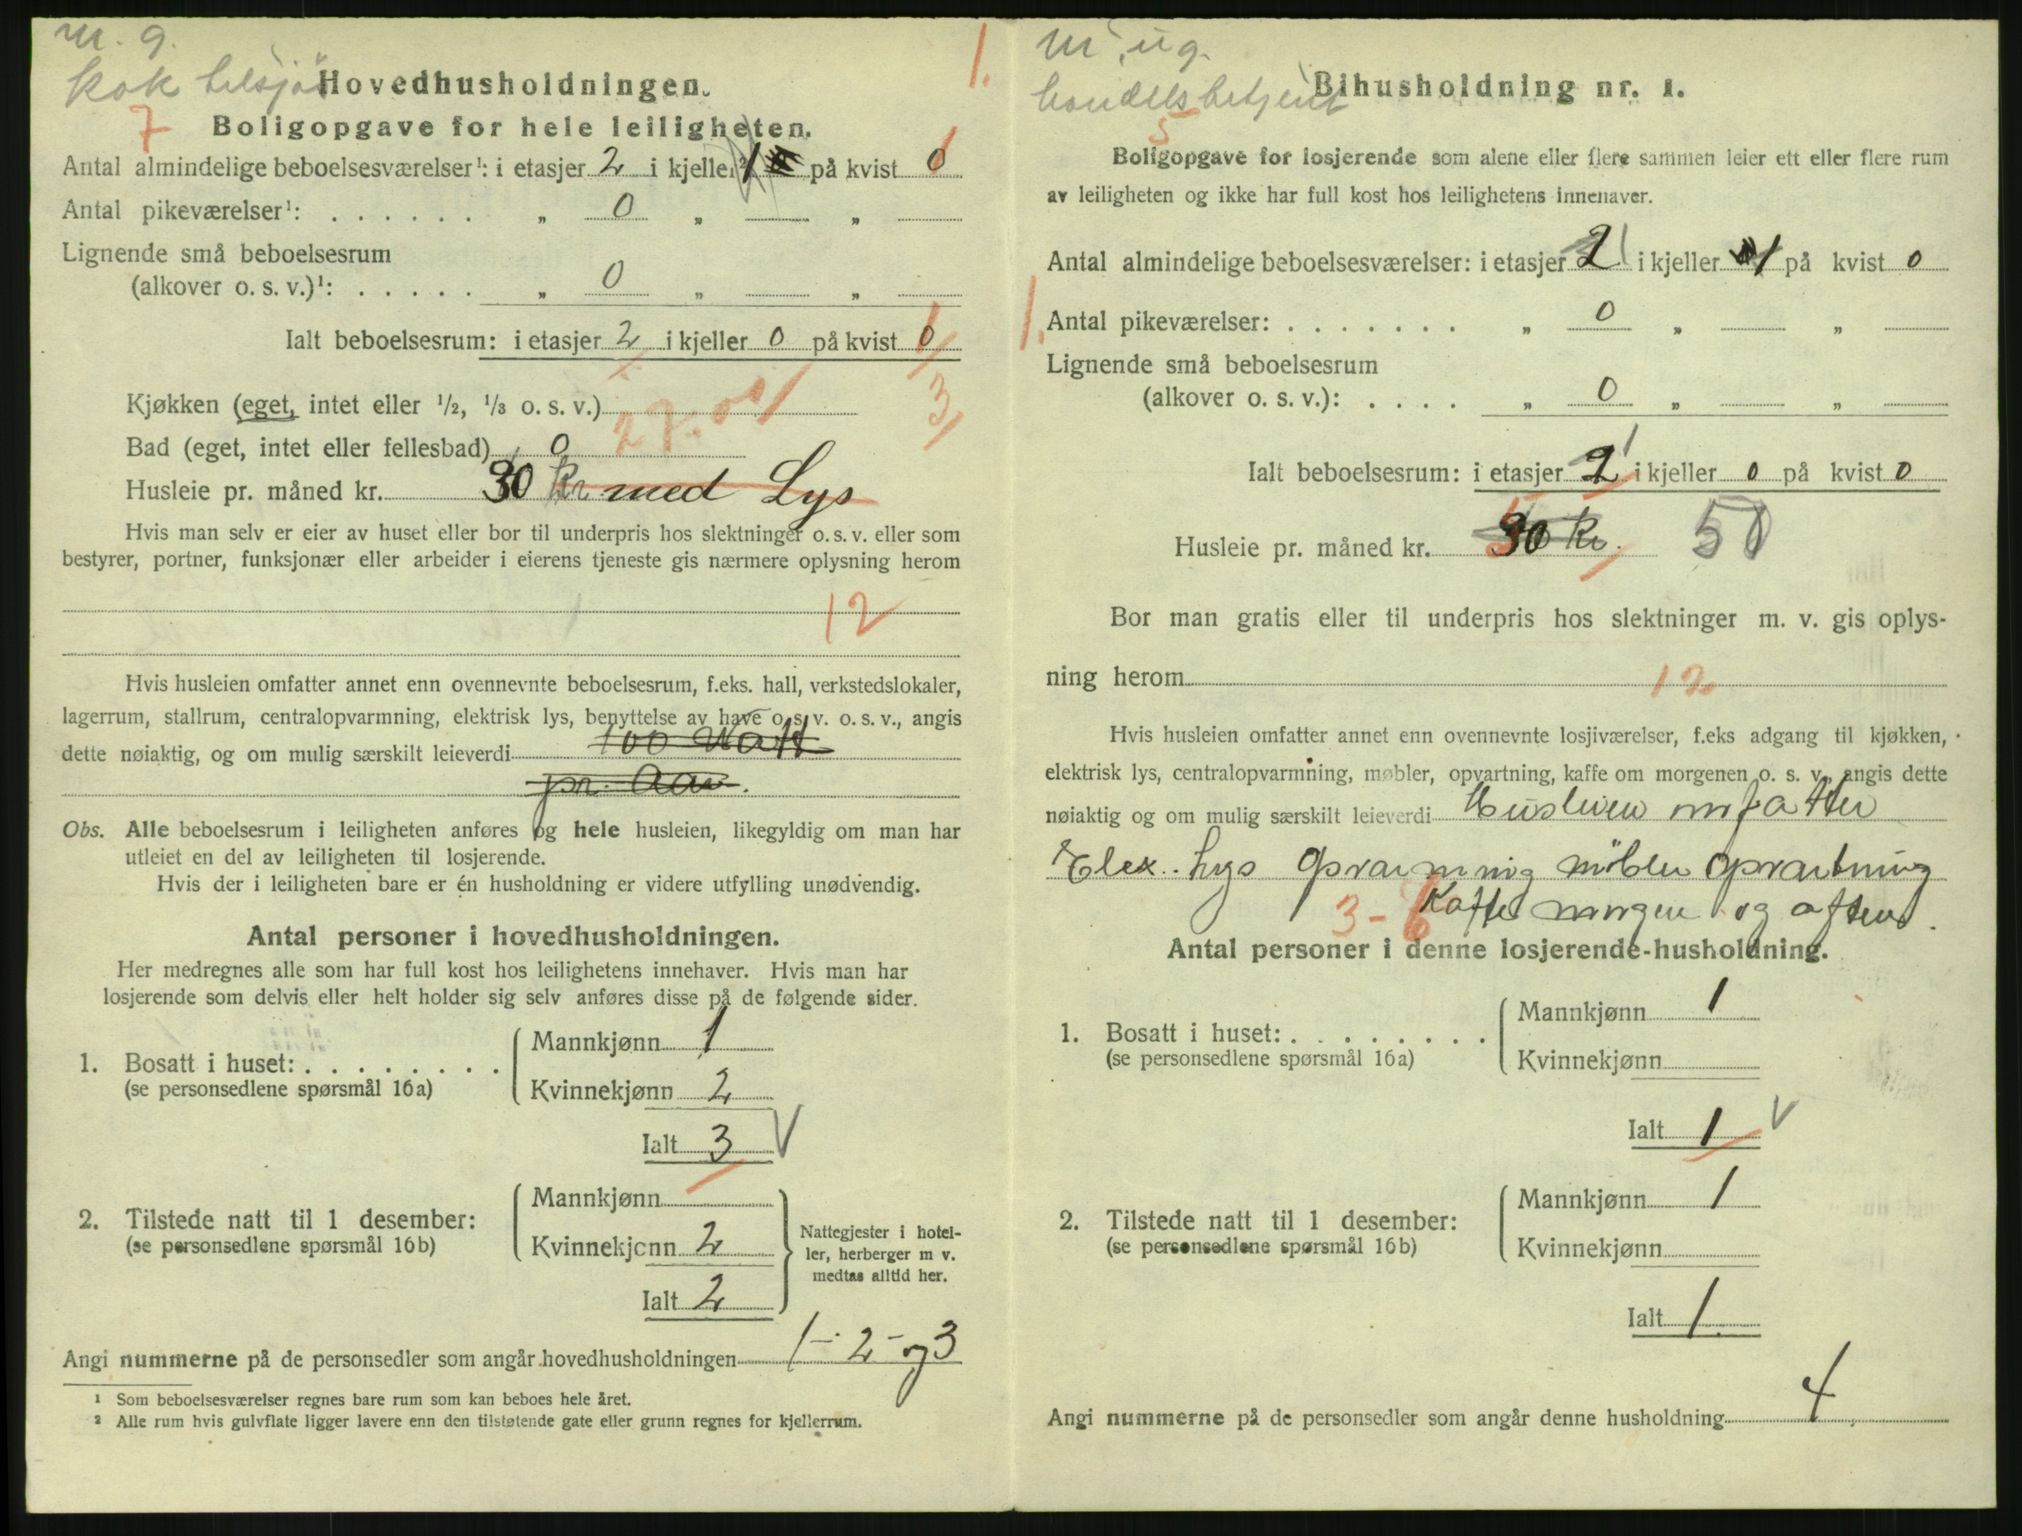 m. g.
kok tilsjøs
1.
Hovedhusholdningen.
7
Boligopgave for hele leiligheten.
Antal almindelige beboelsesværelser¹: i etasjer 2 i kjeller² 1 på kvist 0
Antal pikeværelser¹: . . . . . . „ 0 „ „
Lignende små beboelsesrum
(alkover o. s. v.)¹: . . . . . „ 0 „ „
Ialt beboelsesrum: i etasjer 2 i kjeller 0 på kvist 0
Kjøkken (eget, intet eller 1/2, 1/3 o. s. v.) 3
Bad (eget, intet eller fellesbad) 0
Husleie pr. måned kr. 30 kr med Lys
Hvis man selv er eier av huset eller bor til underpris hos slektninger o. s. v. eller som
bestyrer, portner, funksjonær eller arbeider i eierens tjeneste gis nærmere oplysning herom
12
Hvis husleien omfatter annet enn ovennevnte beboelsesrum, f.eks. hall, verkstedslokaler,
lagerrum, stallrum, centralopvarmning, elektrisk lys, benyttelse av have o. s. v. o. s. v., angis
dette nøiaktig, og om mulig særskilt leieverdi 100 Watt
pr. Aar.
Obs. Alle beboelsesrum i leiligheten anføres og hele husleien, likegyldig om man har
utleiet en del av leiligheten til losjerende.
Hvis der i leiligheten bare er én husholdning er videre utfylling unødvendig.
Antal personer i hovedhusholdningen.
Her medregnes alle som har full kost hos leilighetens innehaver. Hvis man har
losjerende som delvis eller helt holder sig selv anføres disse på de følgende sider.
1. Bosatt i huset: . . . . . . . .
(se personsedlene spørsmål 16a)
Mannkjønn 1
Kvinnekjønn 2
Ialt 3 V
2. Tilstede natt til 1 desember:
(se personsedlene spørsmål 16b)
Mannkjønn
Kvinnekjønn 2
Ialt 2
Nattegjester i hotel-
ler, herberger m v.
medtas alltid her.
Angi nummerne på de personsedler som angår hovedhusholdningen 1-2-og3
¹ Som beboelsesværelser regnes bare rum som kan beboes hele året.
² Alle rum hvis gulvflate ligger lavere enn den tilstøtende gate eller grunn regnes for kjellerrum.
m, ug.
handelsbetjent
Bihusholdning nr. 1.
5
Boligopgave for losjerende som alene eller flere sammen leier ett eller flere rum
av leiligheten og ikke har full kost hos leilighetens innenaver.
Antal almindelige beboelsesværelser: i etasjer 2 1 i kjeller 1 på kvist 0
1.
Antal pikeværelser: . . . . . . . „ 0 „ „
Lignende små beboelsesrum
(alkover o. s. v.): . . . . „ 0 „ „
Ialt beboelsesrum: i etasjer 2 1 i kjeller 0 på kvist 0
Husleie pr. måned kr. 30 kr. 50
Bor man gratis eller til underpris hos slektninger m. v. gis oplys-
ning herom 12
Hvis husleien omfatter annet enn ovennevnte losjiværelser, f.eks adgang til kjøkken,
elektrisk lys, centralopvarmning, møbler, opvartning, kaffe om morgenen o. s. v., angis dette
nøiaktig og om mulig særskilt leieverdi Husleien omfatter
Elex. Lys Opvarmning möbler opvartning
3-6 Kaffe morgen og aften.
Antal personer i denne losjerende-husholdning.
1. Bosatt i huset: . . . . . . . .
(se personsedlene spørsmål 16a)
Mannkjønn 1
Kvinnekjønn
Ialt 1 V
2. Tilstede natt til 1 desember:
(se personsedlene spørsmål 16b)
Mannkjønn 1
Kvinnekjønn
Ialt 1.
Angi nummerne på de personsedler som angår denne husholdning 4